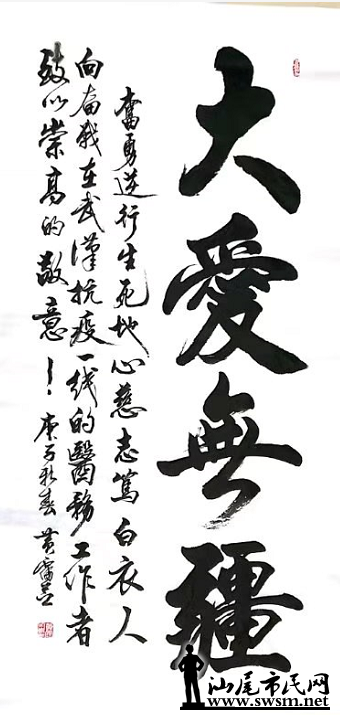 大愛無疆
奮勇逆行生死地心慈志篤白衣人
向奋战在武漢抗疫一线的醫務工作者
致以崇高的敬意！庚子新春 黄
汕尾市民网
www.swsm.net